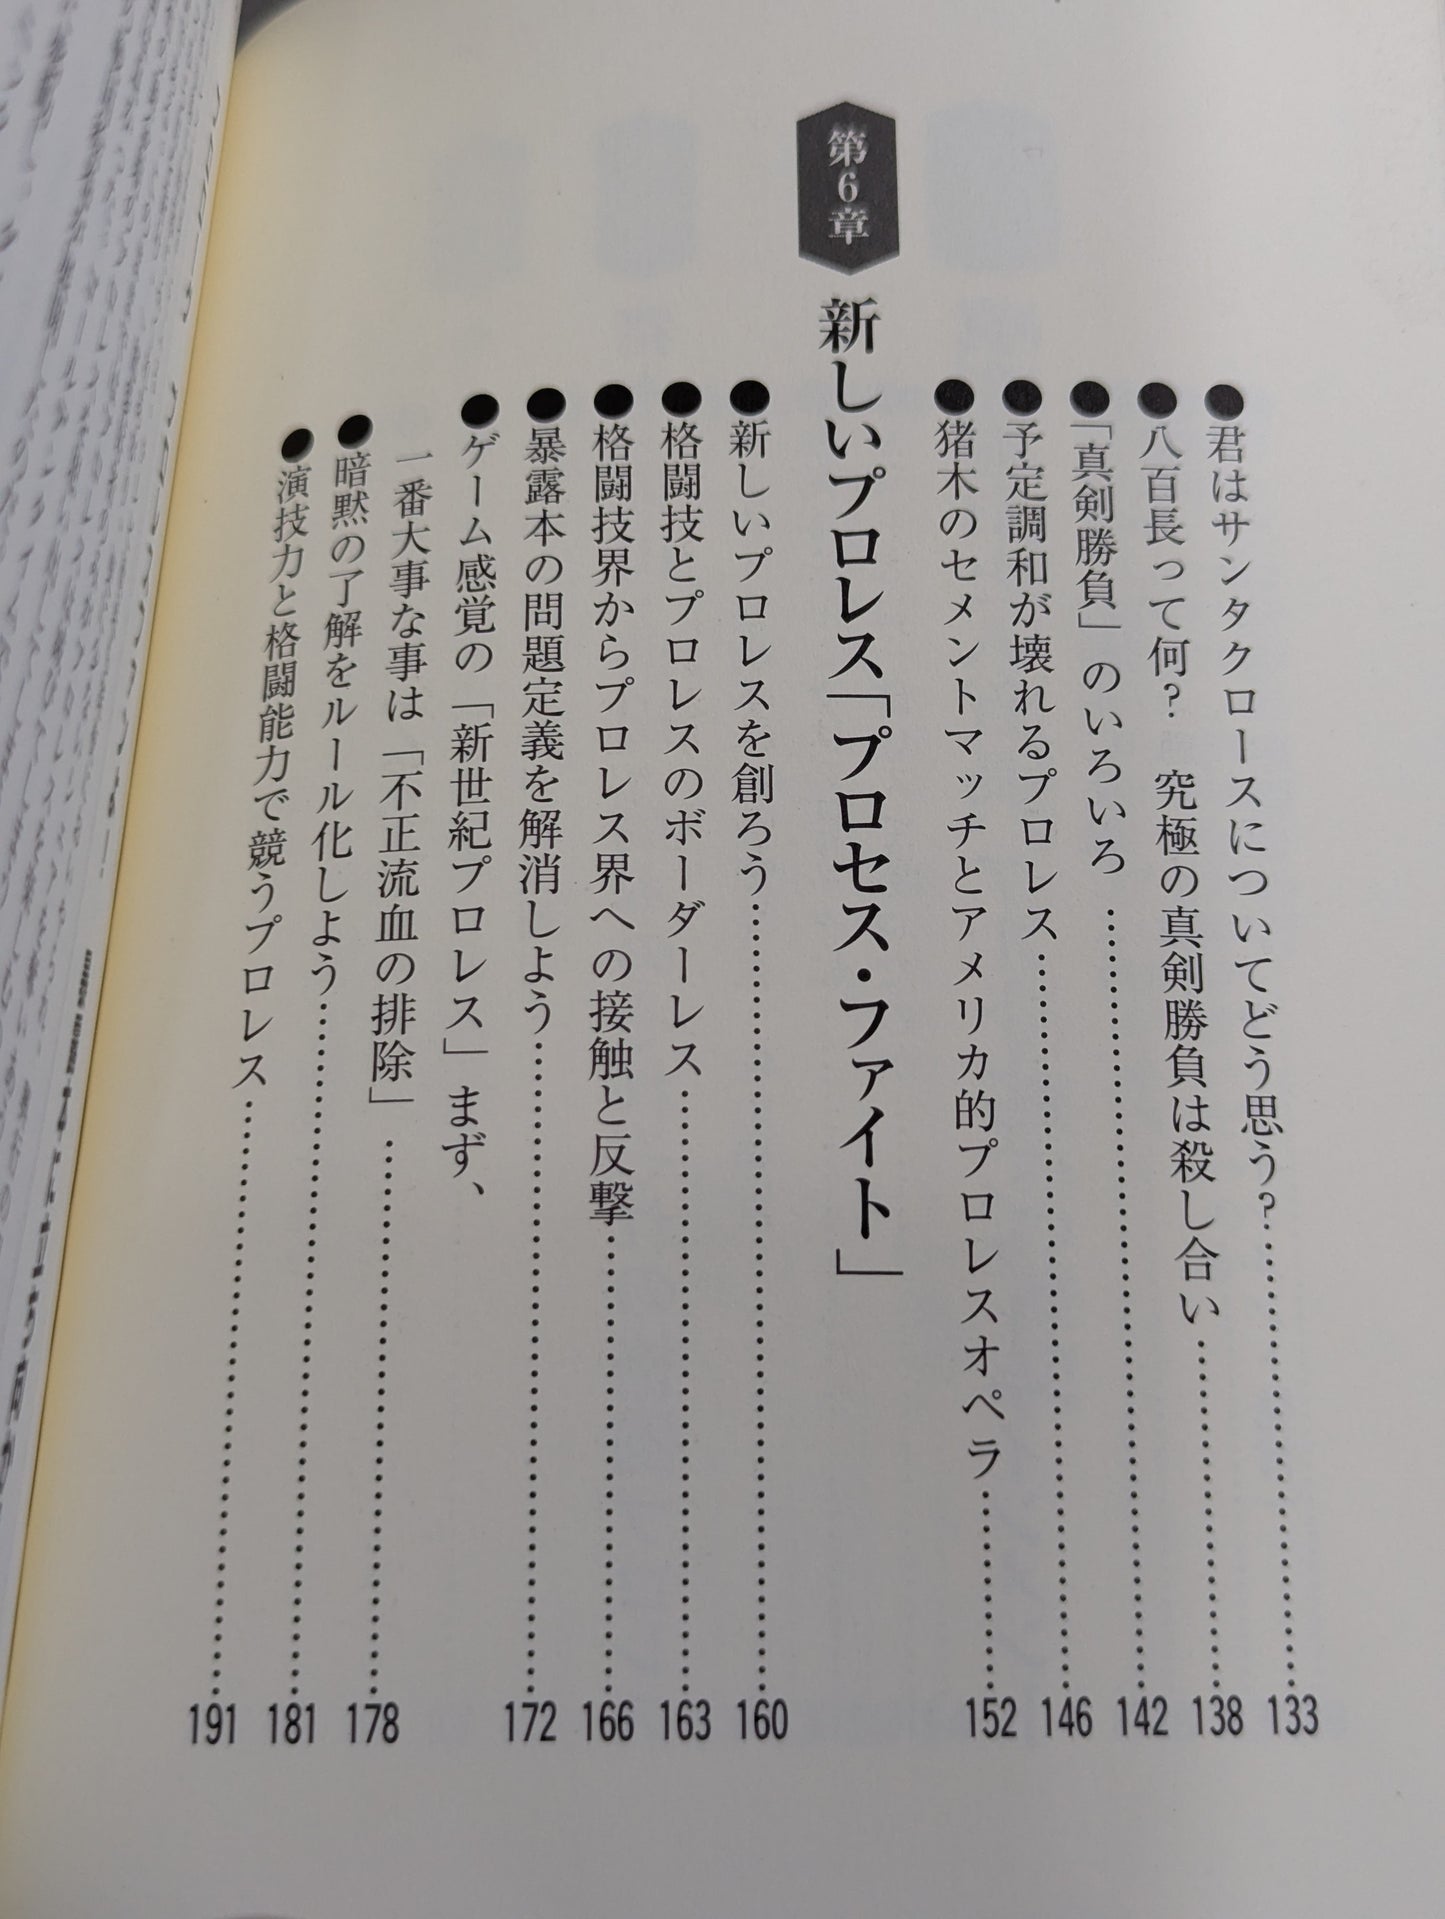 ●君はサンタクロースについてどう思う？……133
●八百長って何？　究極の真剣勝負は殺し合い……138
●「真剣勝負」のいろいろ……142
●予定調和が壊れるプロレス……146
●猪木のセメントマッチとアメリカ的プロレスオペラ……152
第6章　新しいプロレス「プロセス・ファイト」
●新しいプロレスを創ろう……160
●格闘技とプロレスのボーダーレス……163
●格闘技界からプロレス界への接触と反撃……166
●暴露本の問題定義を解消しよう……172
●ゲーム感覚の「新世紀プロレス」まず、
一番大事な事は「不正流血の排除」……178
●暗黙の了解をルール化しよう……181
●演技力と格闘能力で競うプロレス……191